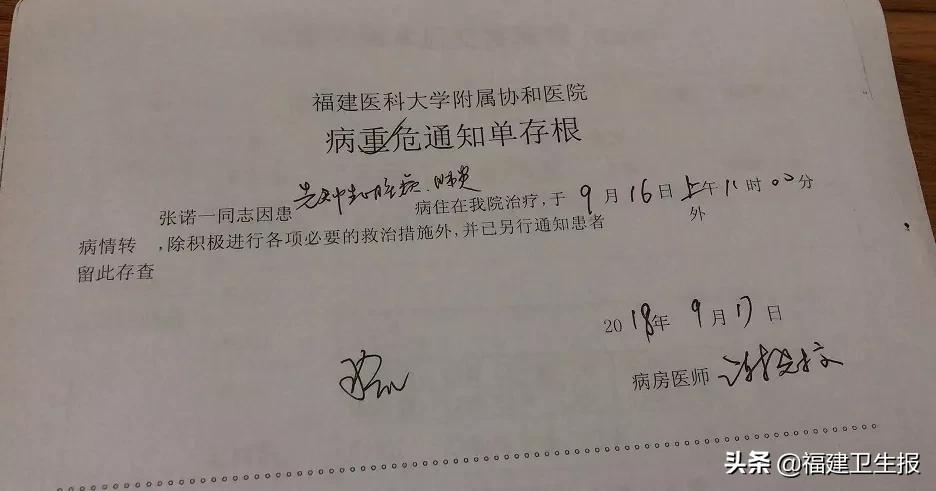 福建医科大学附属协和医院
病重危通知单存根
张诺一同志因患先天性心脏病.肺炎病住在我院治疗,于9月16日上午11时00分
病情转,除积极进行各项必要的救治措施外,并已另行通知患者外
留此存查
2018年9月17日
病房医师
头条@福建卫生报